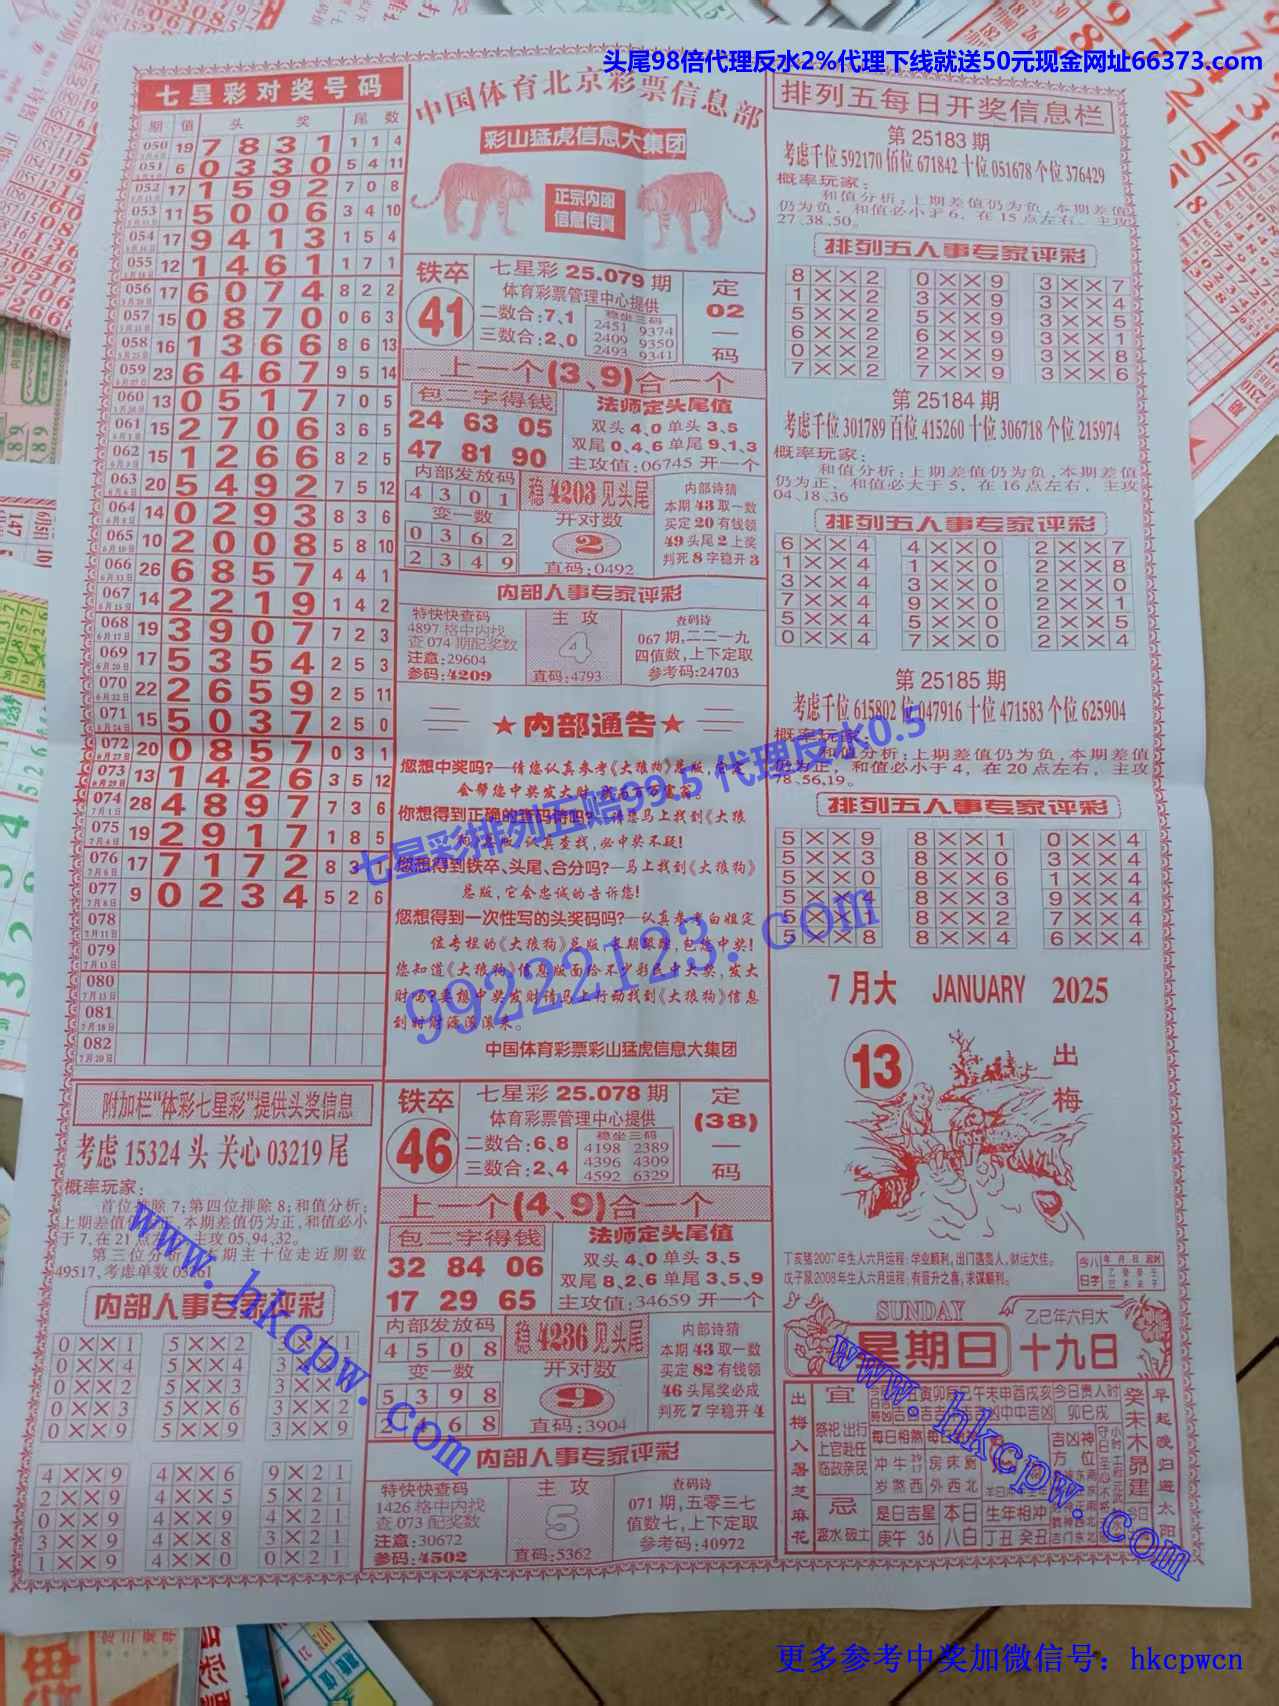 头尾98倍代理反水2%代理下线就送50元现金网址66373.com
七星彩对奖号码
期 值 头 奖 尾 数
050 19 7 8 3 1 1 1 4
051 6 0 3 3 0 5 4 11
052 17 1 5 9 2 7 0 8
053 11 5 0 0 6 3 4 10
054 17 9 4 1 3 1 5 4
055 12 1 4 6 1 1 7 1
056 17 6 0 7 4 8 2 2
057 15 0 8 7 0 0 6 3
058 16 1 3 6 6 8 6 13
059 23 6 4 6 7 9 5 14
060 13 0 5 1 7 7 0 5
061 15 2 7 0 6 3 6 5
062 15 1 2 6 6 8 2 5
063 20 5 4 9 2 7 5 12
064 14 0 2 9 3 8 3 6
065 10 2 0 0 8 5 8 10
066 26 6 8 5 7 4 4 1
067 14 2 2 1 9 1 4 2
068 19 3 9 0 7 7 2 3
069 17 5 3 5 4 2 5 3
070 22 2 6 5 9 2 5 11
071 15 5 0 3 7 2 5 0
072 20 0 8 5 7 0 3 1
073 13 1 4 2 6 3 5 12
074 28 4 8 9 7 7 3 6
075 19 2 9 1 7 1 8 5
076 17 7 1 7 2 8 3 1
077 9 0 2 3 4 5 2 6
078
079
080
081
082
附加栏“体彩七星彩”提供头奖信息
考虑 15324 头 关心 03219 尾
概率玩家：
首位排除 7；第四位排除 8；和值分析；
本期差值仍为正，和值必小
于 7，在 21 点左 主攻 05,94,32。
第三位分析 期主十位走近期数
49517，考虑单数
内部人事专家评彩
0××1 5××2
0××4 5××4
0××2 5××3
0××3 5××6 3××9
0××9 5××9 3××9
4××9 4××6 9×21
2××9 4××5 5×21
0××9 4××4 3×21
3××9 4××8 2×21
1××9 4××0 0×21
中国体育北京彩票信息部
彩山猛虎信息大集团
正宗内部
信息传真
铁卒 41
七星彩 25.079 期
体育彩票管理中心提供
二数合:7、1
三数合:2、0
稳坐三码
2451 9374
2409 9350
2493 9341
定 02 一码
上一个(3、9)合一个
包二字得钱
24 63 05
47 81 90
法师定头尾值
双头 4、0 单头 3、5
双尾 0、4、6 单尾 9、1、3
主攻值:06745 开一个
内部发放码
4 3 0 1
变一数
0 3 6 2
2 3 4 9
稳 4203 见头尾
开对数
2
直码:0492
内部诗猜
本期 43 取一数
买定 20 有钱领
49 头尾 2 上奖
判死 8 字稳开 3
内部人事专家评彩
特快快查码
4897 格中内找
查 074 期配奖数
注意:29604
参码:4209
主攻
4
直码:4793
查码诗
067 期,二二一九
四值数,上下定取
参考码:24703
★内部通告★
您想中奖吗?—请您认真参考《大狼狗》总版,
会帮您中奖发大财
你想得到正确的查码诗吗? 请您马上找到《大狼
认真查找,必中奖不疑!
您想得到铁卒、头尾、合分吗?—马上找到《大狼狗》
总版,它会忠诚的告诉您!
您想得到一次性写的头奖码吗?—认真参考白姐定
位专栏的《大狼狗》总版,长期跟踪,包您中奖!
您知道《大狼狗》信息版面给不少彩民中大奖,发大
财吗?要想中奖发财请马上行动找到《大狼狗》信息
到时财源滚滚来。
中国体育彩票彩山猛虎信息大集团
铁卒 46
七星彩 25.078 期
体育彩票管理中心提供
二数合:6、8
三数合:2、4
稳坐三码
4198 2389
4396 4309
4592 6329
定 (38) 一码
上一个(4、9)合一个
包二字得钱
32 84 06
17 29 65
法师定头尾值
双头 4、0 单头 3、5
双尾 8、2、6 单尾 3、5、9
主攻值:34659 开一个
内部发放码
4 5 0 8
变一数
5 3 9 8
6 8
稳 4236 见头尾
开对数
9
直码:3904
内部诗猜
本期 43 取一数
买定 82 有钱领
46 头尾奖必成
判死 7 字稳开 4
内部人事专家评彩
特快快查码
1426 格中内找
查 073 配奖数
注意:30672
参码:4502
主攻
5
直码:5362
查码诗
071 期,五零三七
值数七,上下定取
参考码:40972
排列五每日开奖信息栏
第 25183 期
考虑千位 592170 佰位 671842 十位 051678 个位 376429
概率玩家:
和值分析;上期差值仍为负,本期差值
仍为负,和值必小于 6,在 15 点左右,主攻
27、38、50。
排列五人事专家评彩
8××2 0××9 3××7
1××2 3××9 3××4
5××2 5××9 3××5
6××2 6××9 3××1
0××2 2××9 3××8
7××2 7××9 3××6
第 25184 期
考虑千位 301789 百位 415260 十位 306718 个位 215974
概率玩家:
和值分析;上期差值仍为负,本期差值
仍为正,和值必大于 5,在 16 点左右,主攻
04、18、36
排列五人事专家评彩
6××4 4××0 2××7
1××4 1××0 2××8
3××4 3××0 2××0
7××4 9××0 2××1
5××4 5××0 2××5
0××4 7××0 2××4
第 25185 期
考虑千位 615802 位 047916 十位 471583 个位 625904
概率玩家:
和值分析;上期差值仍为负,本期差值
仍为正,和值必小于 4,在 20 点左右,主攻
78、56、19。
排列五人事专家评彩
5××9 8××1 0××4
5××3 8××0 2××4
5××0 8××6 1××4
5××4 8××3 9××4
5××6 8××2 7××4
5××8 8××4 6××4
7 月大 JANUARY 2025
13
出梅
丁亥猪2007年生人六月运程:学业顺利,出门遇贵人,财运欠佳。
戊子鼠2008年生人六月运程:有晋升之喜,求谋顺利。
今日八字
SUNDAY
星期日
乙巳年六月大
十九日
出梅入暑芝麻花
宜
祭祀 出行
上官赴任
临政亲民
忌
今日贵人时
卯巳戌
每日相煞
冲牛
岁煞西
吉凶神方位
是日吉星
庚午 36
本日
八白
生年相冲
丁丑 癸丑
癸未木昴建
早起晚归遮太阳
七星彩排列五赔99.5 代理反水0.5
99222123.com
www.hkcpw.com
www.hkcpw.com
更多参考中奖加微信号：hkcpwcn